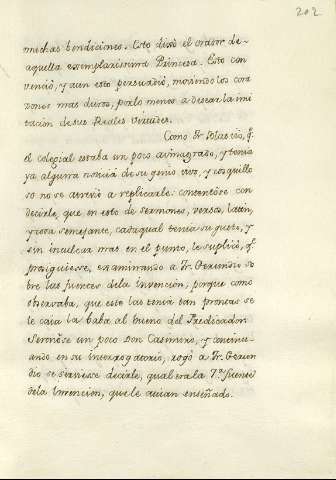 202
muchas bendiciones. Esto dixo el orador de
aquella exemplarissima Princesa. Esto con
venció, y aun esto persuadió, moviendo los cora
zones mas duros, por lo menos a desear la imi
tacion de sus Reales Virtudes.
Como Fr. Blas vió, q.e
el colegial estaba un poco avinagrado, y tenia
ya alguna noticia de su genio vivo, y cosquillo
so no se atrevió a replicarle: contentóse con
decirle, que en esto de sermones, versos, latin,
y cosa semejante, cada qual tenia su gusto, y
sin inculcar mas en el punto, le suplicó, q.e
prosiguiesse, examinando a Fr. Gerundio so
bre las fuentes de la invencion, porque como
observaba, que este las tenia tan prontas se
le caia la baba al bueno del Predicador.
Serenóse un poco Don Casimiro, y continu
ando en su interrogatorio, rogó a Fr. Gerun
dio se sirviesse decirle, qual era la 7.a fuente
de la Invencion, que le avian enseñado.